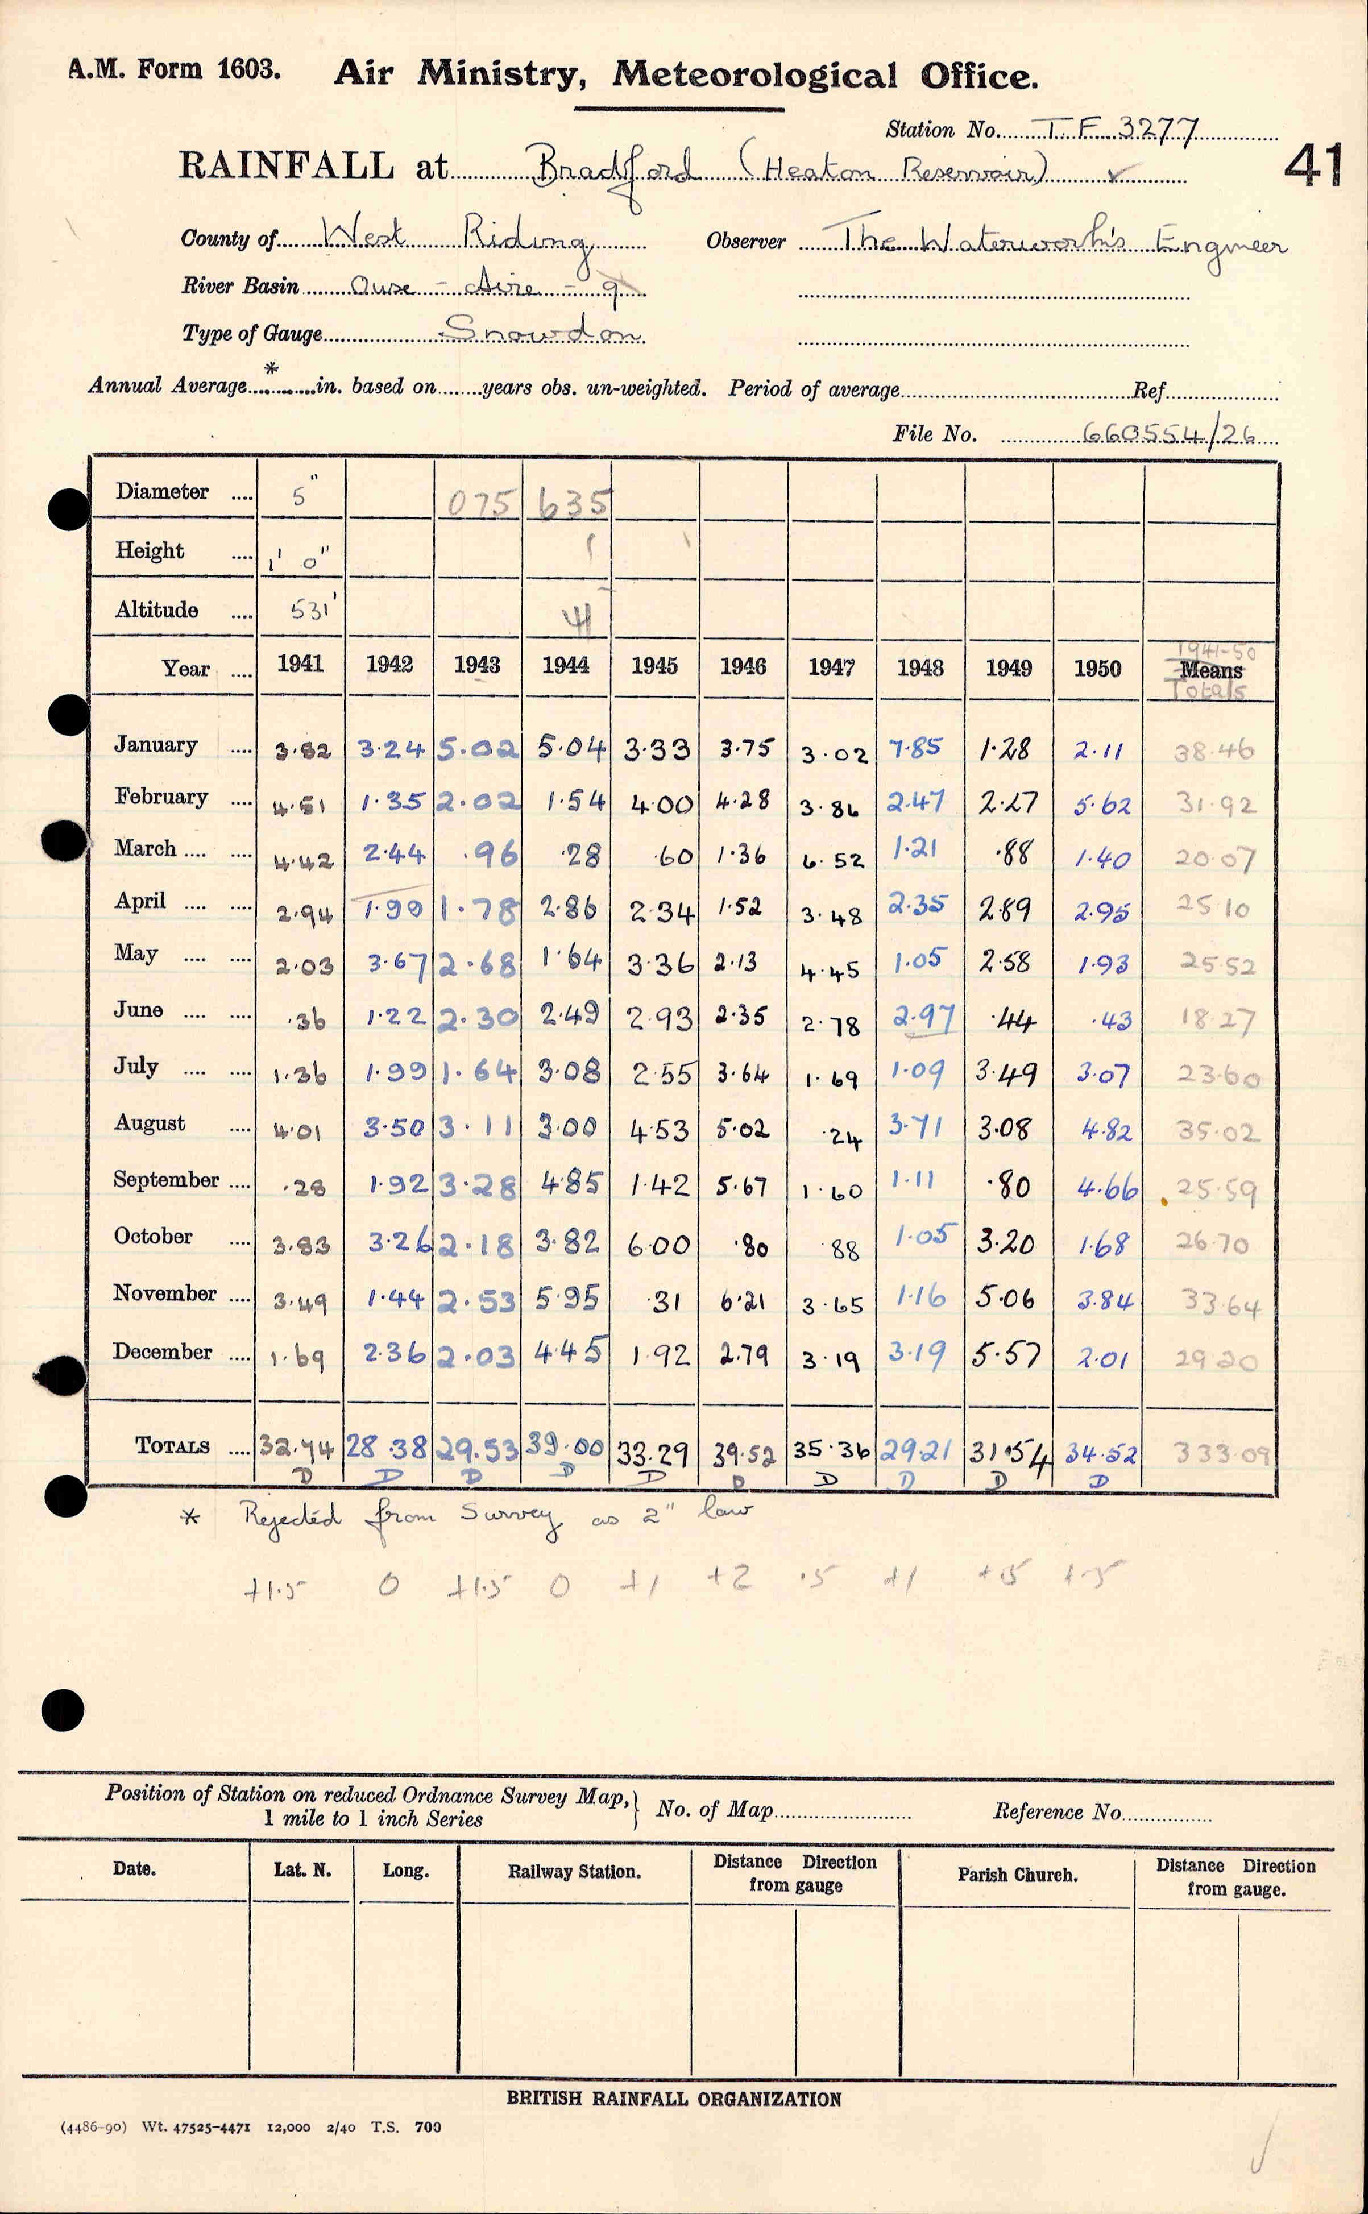 A.M. Form 1603. Air Ministry, Meteorological Office.
Station No. TF 3277
RAINFALL at Bradford (Heaton Reservoir) ✓
41
County of West Riding Observer The Waterworks Engineer
River Basin Ouse - Aire - 9
Type of Gauge Snowdon
Annual Average * in. based on years obs. un-weighted. Period of average Ref
File No. 660554/26
Diameter .... 5" 075 635
Height .... 1' 0"
Altitude .... 531'
Year .... 1941 1942 1943 1944 1945 1946 1947 1948 1949 1950 1941-50 Means Totals
January .... 3.82 3.24 5.02 5.04 3.33 3.75 3.02 7.85 1.28 2.11 38.46
February .... 4.51 1.35 2.02 1.54 4.00 4.28 3.86 2.47 2.27 5.62 31.92
March .... .... 4.42 2.44 .96 .28 .60 1.36 6.52 1.21 .88 1.40 20.07
April .... .... 2.94 1.99 1.78 2.86 2.34 1.52 3.48 2.35 2.89 2.95 25.10
May .... .... 2.03 3.67 2.68 1.64 3.36 2.13 4.45 1.05 2.58 1.93 25.52
June .... .... .36 1.22 2.30 2.49 2.93 2.35 2.78 2.97 .44 .43 18.27
July .... .... 1.36 1.99 1.64 3.08 2.55 3.64 1.69 1.09 3.49 3.07 23.60
August .... 4.01 3.50 3.11 3.00 4.53 5.02 .24 3.71 3.08 4.82 35.02
September .... .28 1.92 3.28 4.85 1.42 5.67 1.60 1.11 .80 4.66 25.59
October .... 3.83 3.26 2.18 3.82 6.00 .80 .88 1.05 3.20 1.68 26.70
November .... 3.49 1.44 2.53 5.95 .31 6.21 3.65 1.16 5.06 3.84 33.64
December .... 1.69 2.36 2.03 4.45 1.92 2.79 3.19 3.19 5.57 2.01 29.20
TOTALS .... 32.74 28.38 29.53 39.00 33.29 39.52 35.36 29.21 31.54 34.52 333.09
D D D D D D D D D D
* Rejected from Survey as 2" low
+1.5 0 +1.5 0 +1 +2 .5 +1 +.5 +.5
Position of Station on reduced Ordnance Survey Map, 1 mile to 1 inch Series No. of Map Reference No.
Date. Lat. N. Long. Railway Station. Distance Direction from gauge Parish Church. Distance Direction from gauge.
BRITISH RAINFALL ORGANIZATION
(4486-90) Wt. 47525-4471 12,000 2/40 T.S. 700